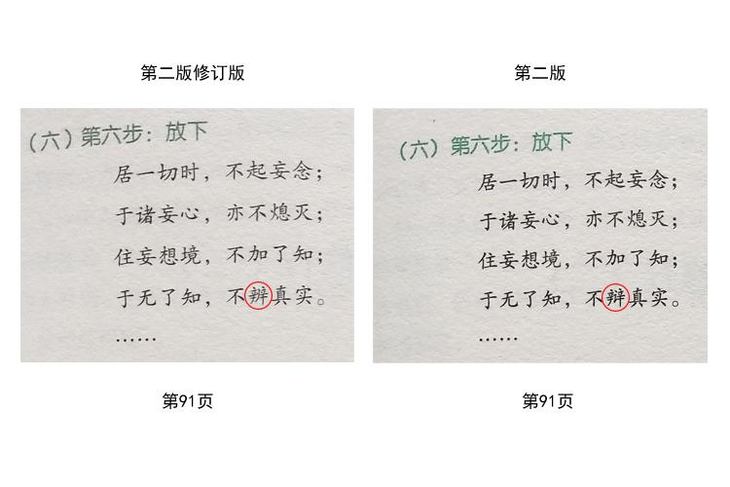 第二版修订版
（六）第六步：放下
居一切时，不起妄念；
于诸妄心，亦不熄灭；
住妄想境，不加了知；
于无了知，不辨真实。
……
第91页
第二版
（六）第六步：放下
居一切时，不起妄念；
于诸妄心，亦不熄灭；
住妄想境，不加了知；
于无了知，不辩真实。
……
第91页